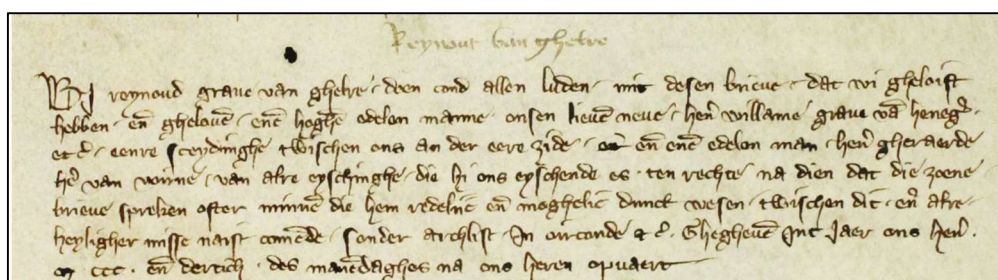 Reynout van ghelre
Wi reynoud graue van ghelre · doen cond allen luden · mit desen brieue · dat wi gheloift
hebben · en̄ ghelouē · enē hoghē edelen manne · onsen lieuē neue · her̄ willame graue vā heneḡ ·
et c̄ · eenre sceydinghe twischen ons an der eere zide · en̄ enē edelen man · her̄ gheraerde
he͛ van voirne · van alre eyschinghe · die hi ons eyschende es · ten rechte na dien dat die zoene
brieue spreken ofter minnē die hem redelic en̄ moghelic dunct wesen · twischen dit · en̄ alre
heyligher misse naist comēde · sonder archlist · In oirconde et c̄ · Ghegheuē Int Jaer ons her̄ ·
m ccc · en̄ dertich · des manēdaghes na ons heren opuaert